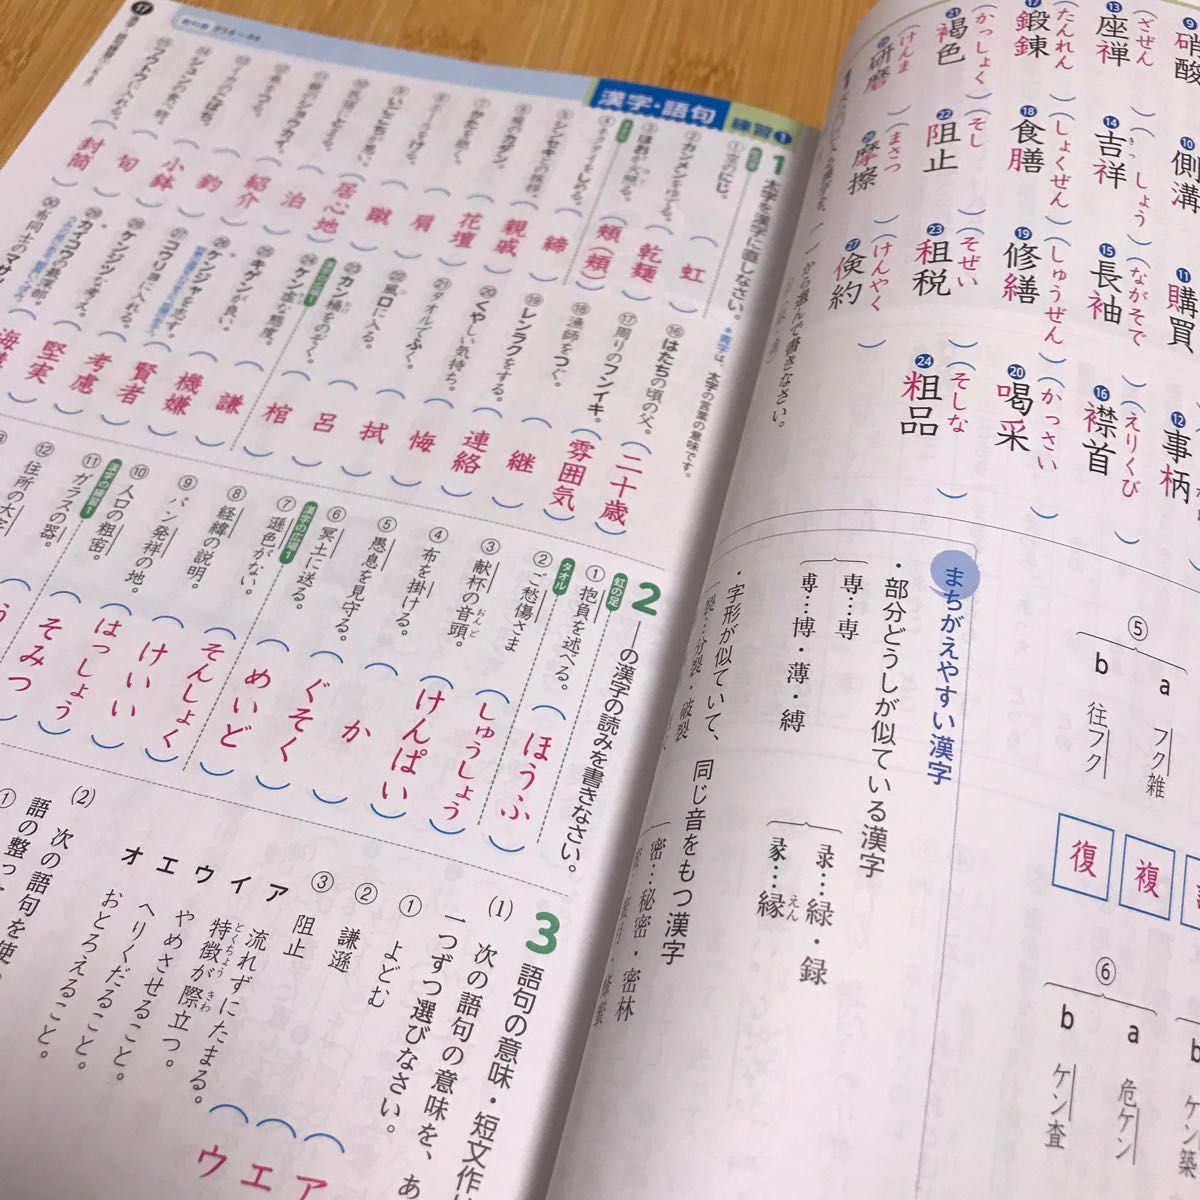 ⑨硝酸
⑩側溝
⑪購買
⑫事柄
⑬座禅（ざぜん）
⑭吉祥（きっしょう）
⑮長袖（ながそで）
⑯襟首（えりくび）
⑰鍛錬（たんれん）
⑱食膳（しょくぜん）
⑲修繕（しゅうぜん）
⑳喝采（かっさい）
㉑褐色（かっしょく）
㉒阻止（そし）
㉓租税（そぜい）
㉔粗品（そしな）
研磨（けんま）
摩擦（まさつ）
㉗倹約（けんやく）
から選んで書きなさい。
⑤
a フク雑
b 往フク
複
復
⑥
a 危ケン
b ケン査
ケン築
まちがえやすい漢字
・部分どうしが似ている漢字
専…専
専…博・薄・縛
录…緑・録
彖…縁えん
・字形が似ていて、同じ音をもつ漢字
裂…分裂・破裂
密…秘密・密林
漢字・語句 練習1
1 太字を漢字に直しなさい。
＊青字は、太字の言葉の意味です。
虹の足
①空のにじ。（虹）
②カンメンをゆでる。（乾麺）
③ほおが火照る。（頬（頰））
タオル
④ネクタイをしめる。（締）
⑤シンセキの無事。（親戚）
⑥庭のカダン。（花壇）
⑦かたを抱く。（肩）
⑧ボールをける。（蹴）
⑨いごこちが悪い。（居心地）
⑩旅館にとまる。（泊）
⑪親のショウカイ。（紹介）
⑫魚をつる。（釣）
⑬一つのこばち。（小鉢）
⑭シュンの食べ物。（旬）
⑮フウトウに入れる。（封筒）
⑯はたちの頃の父。（二十歳）
⑰周りのフンイキ。（雰囲気）
⑱漁師をつぐ。（継）
⑲レンラクをする。（連絡）
⑳くやしい気持ち。（悔）
㉑タオルでふく。（拭）
㉒風口に入る。（呂）
㉓カン桶をのぞく。（棺）
漢字の広場1
㉔ケン虚な態度。（謙）
㉕キゲンが良い。（機嫌）
㉖ケンジャを志す。（賢者）
㉗コウリョに入れる。（考慮）
㉘ケンジツな考え。（堅実）
2 ──の漢字の読みを書きなさい。
虹の足
①抱負を述べる。（ほうふ）
タオル
②ご愁傷さま（しゅうしょう）
③献杯の音頭おんど。（けんぱい）
④布を掛ける。（か）
⑤愚息を見守る。（ぐそく）
⑥冥土に送る。（めいど）
漢字の広場1
⑦遜色がない。（そんしょく）
⑧経緯の説明。（けいい）
⑨パン発祥の地。（はっしょう）
⑩人口の粗密。（そみつ）
漢字の練習1
⑪ガラスの器。
⑫住所の大字
3 語句の意味・短文作
(1) 次の語句の意味を、あ
一つずつ選びなさい。
①よどむ（ア
②謙遜（エ
③阻止（ウ
ア 流れずにたまる。
イ 特徴とくちょうが際きわ立つ。
ウ やめさせること。
エ へりくだること。
オ おとろえること。
(2) 次の語句を使
①語の整っ
17